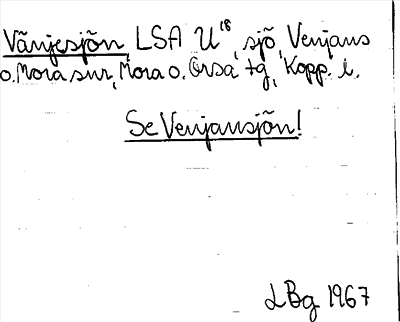 Vänjesjön LSA U¹⁸, sjö, Venjans
o. Mora snr, Mora o. Orsa tg, Kopp. l.
Se Venjansjön!
LBg 1967